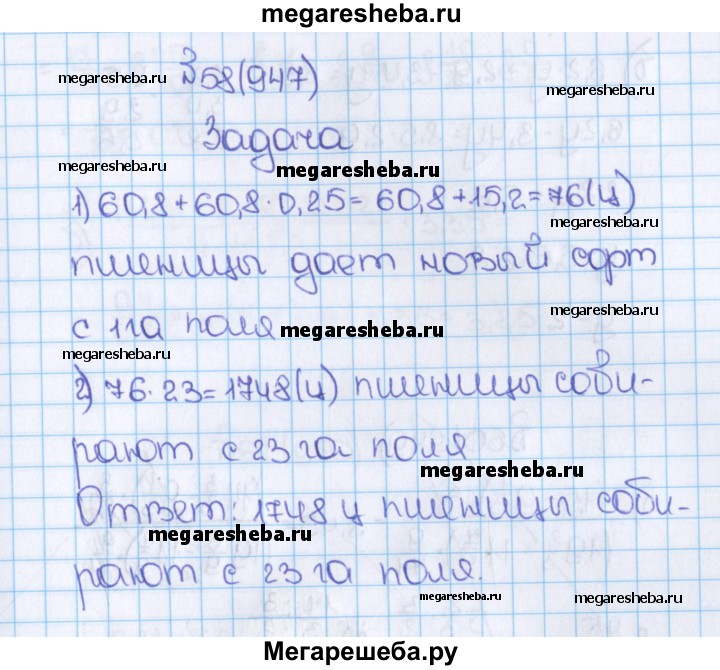 megaresheba.ru
№58(947)
megaresheba.ru
megaresheba.ru
Задача
megaresheba.ru
megaresheba.ru
1) 60,8+60,8·0,25= 60,8+15,2=76(ц)
пшеницы дает новый сорт
megaresheba.ru
с 1га поля
megaresheba.ru
megaresheba.ru
2) 76·23=1748(ц) пшеницы соби-
рают с 23 га поля
megaresheba.ru
Ответ: 1748 ц пшеницы соби-
megaresheba.ru
рают с 23 га поля.
megaresheba.ru
megaresheba.ru
Мегарешеба.ру